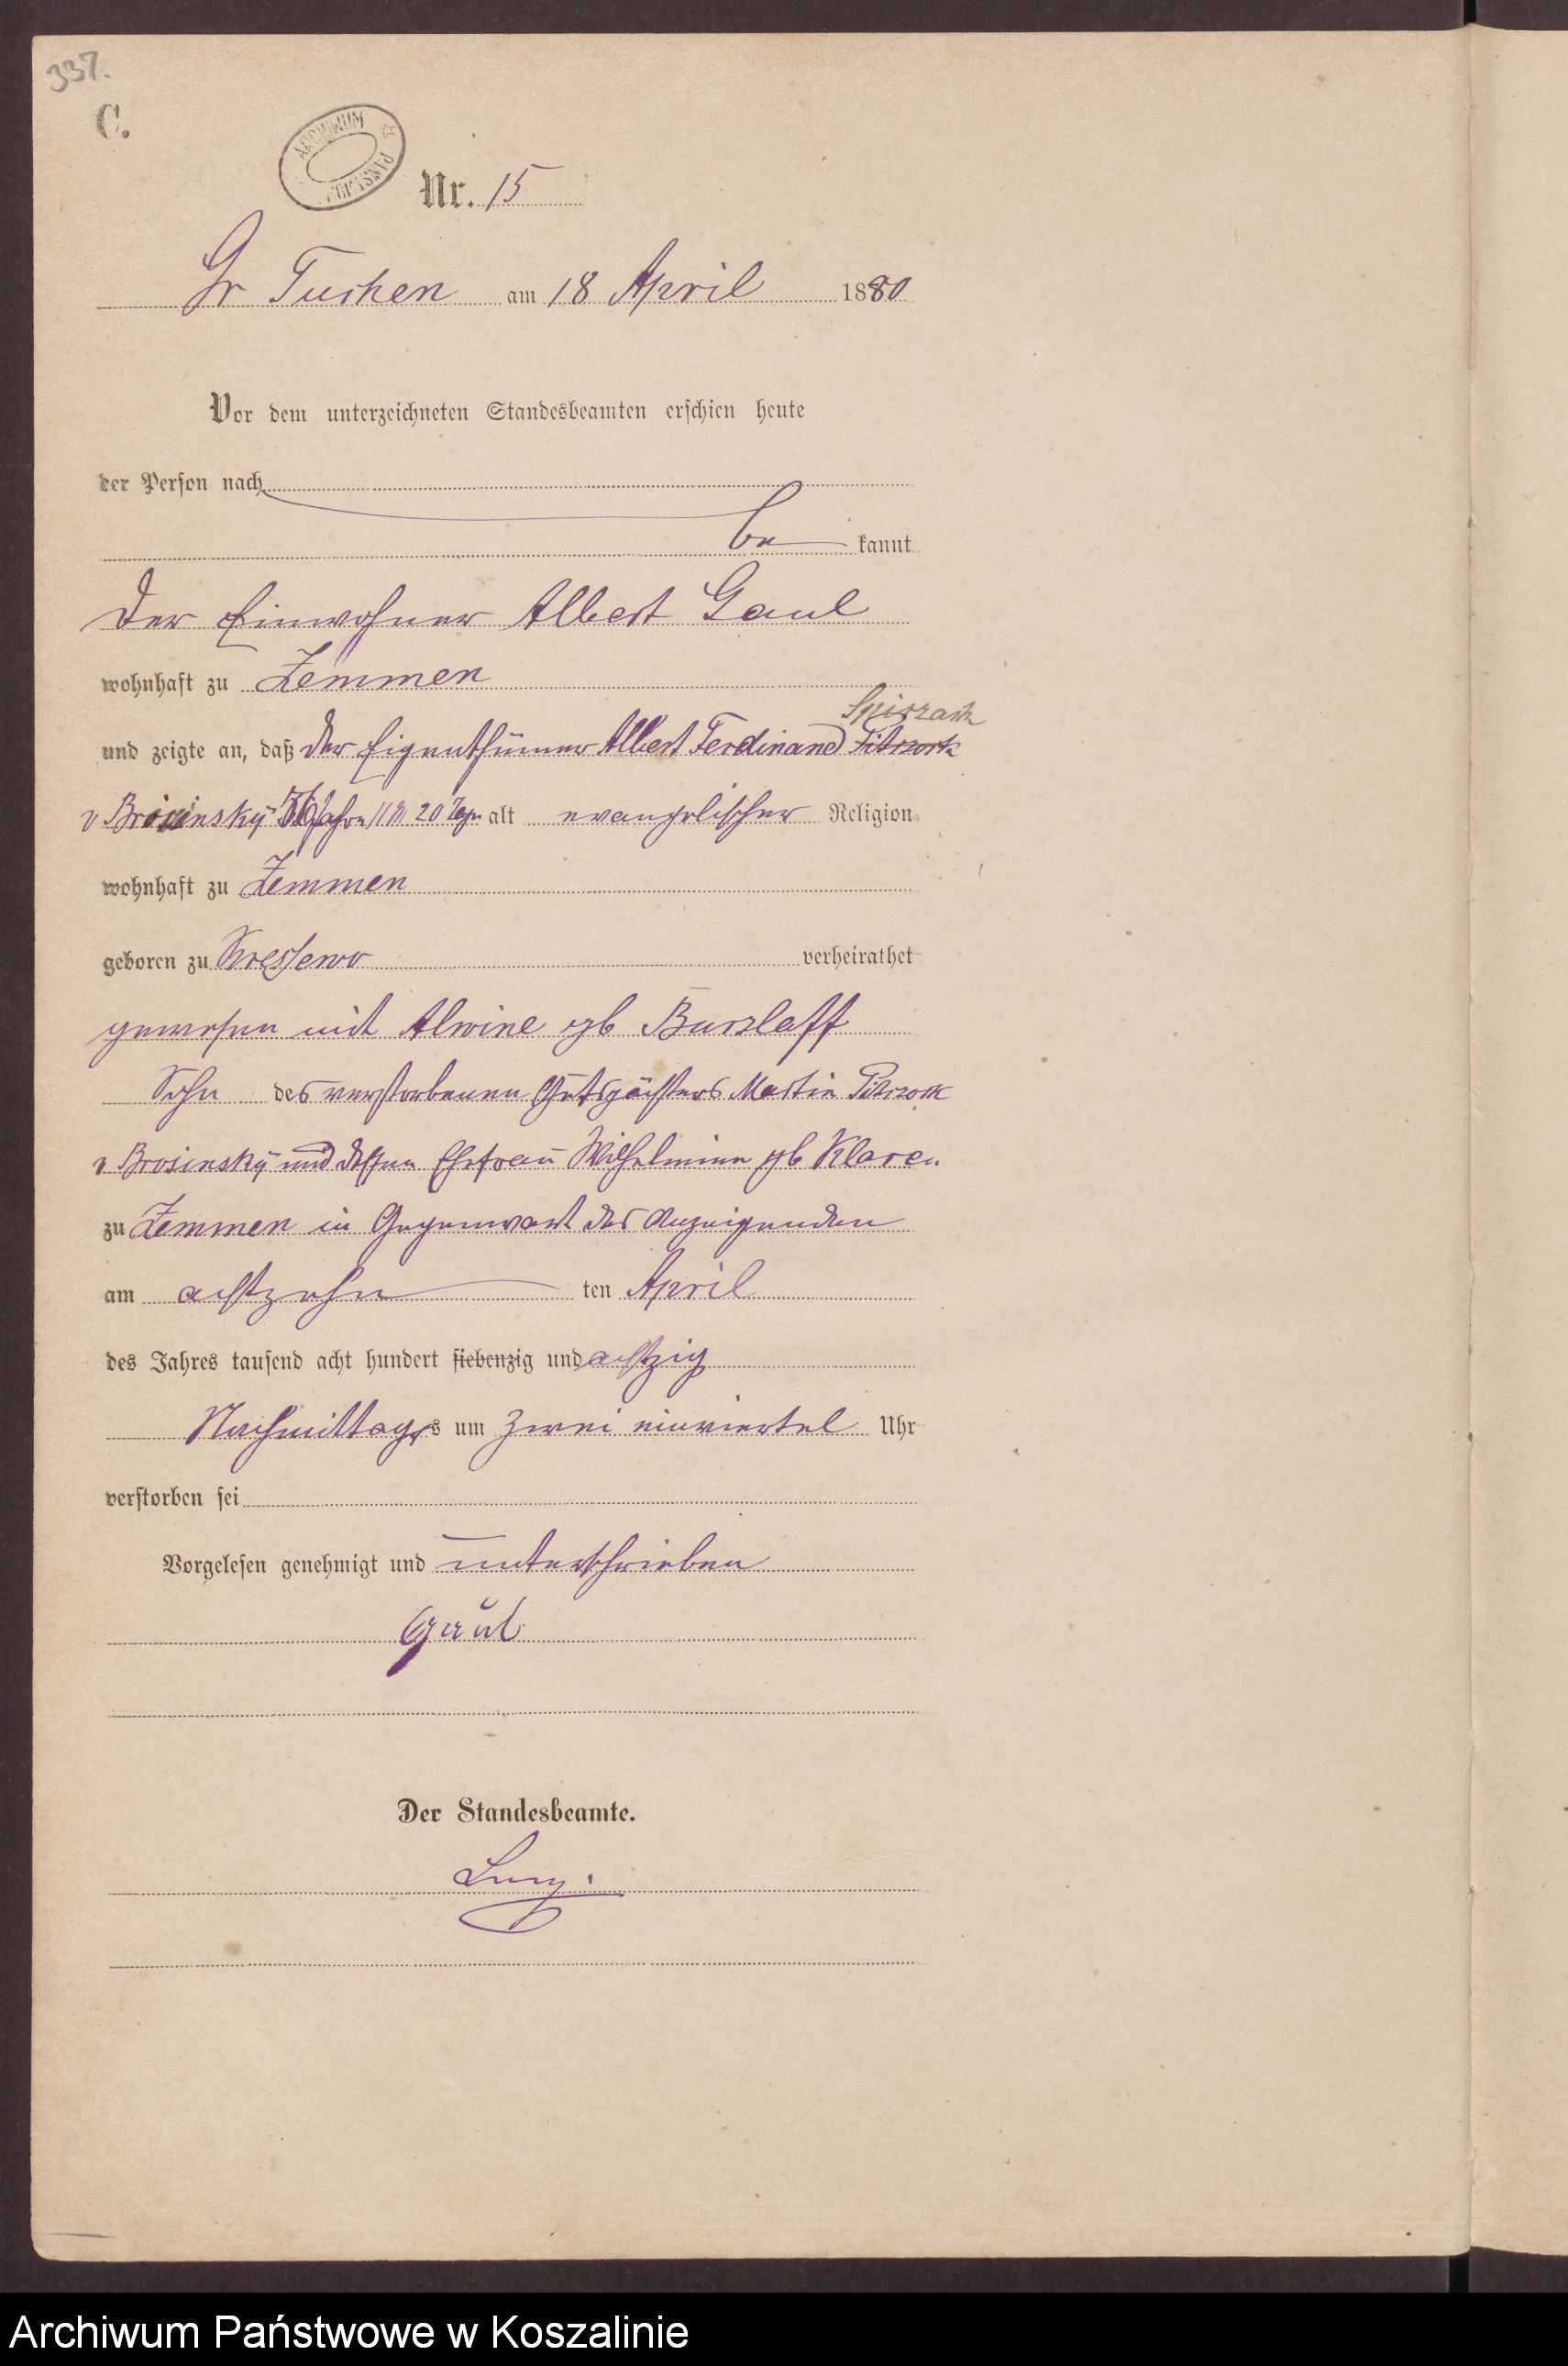 337.
C.
ARCHIWUM PAŃSTW
Nr. 15
Gr Tuchen am 18 April 1880
Vor dem unterzeichneten Standesbeamten erschien heute
der Person nach
be kannt
der Einwohner Albert Gaul
wohnhaft zu Zemmen
und zeigte an, daß der Eigenthümer Albert Ferdinand
v Brosinsky Jahre 11 M 20 Tage alt evangelischer Religion
wohnhaft zu Zemmen
geboren zu verheirathet
gewesen mit Alwine gb Burzlaff
Sohn des verstorbenen Gutspächters Martin
v Brosinsky und dessen Ehefrau Wilhelmine gb Klaren
zu Zemmen in Gegenwart des Anzeigenden
am achtzehn ten April
des Jahres tausend acht hundert siebenzig und achtzig
Nachmittags um zwei einviertel Uhr
verstorben sei
Vorgelesen genehmigt und unterschrieben
Gaul
Der Standesbeamte.
Archiwum Państwowe w Koszalinie